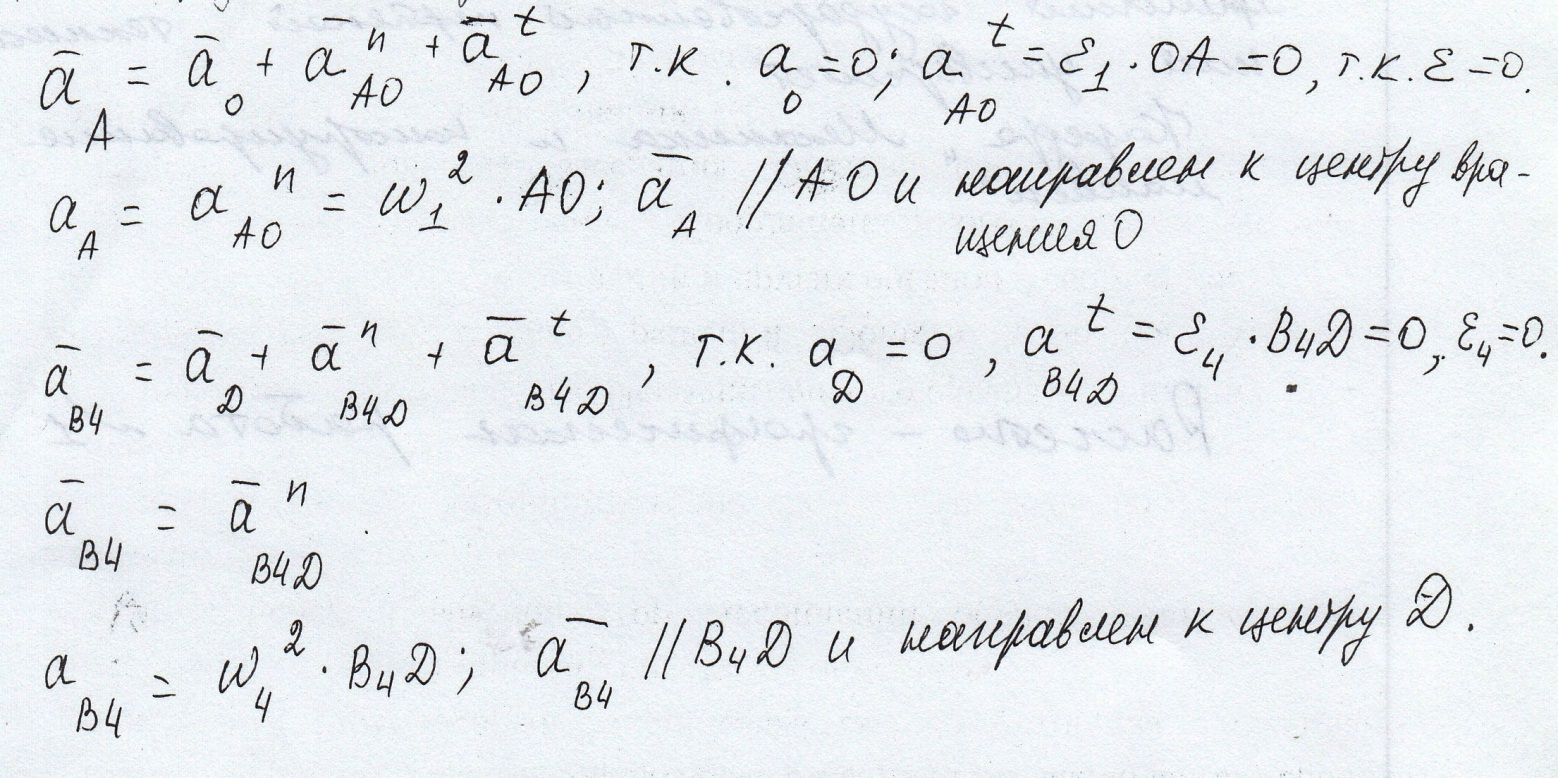 ā_A = ā_O + ā^n_AO + ā^t_AO, т.к. a_O = 0; a^t_AO = ε_1 · OA = 0, т.к. ε = 0.
a_A = a^n_AO = ω_1^2 · AO; ā_A // AO и направлен к центру вра-
щения O
ā_B4 = ā_D + ā^n_B4D + ā^t_B4D, т.к. a_D = 0, a^t_B4D = ε_4 · B_4D = 0, ε_4 = 0.
ā_B4 = ā^n_B4D.
a_B4 = ω_4^2 · B_4D; ā_B4 // B_4D и направлен к центру D.